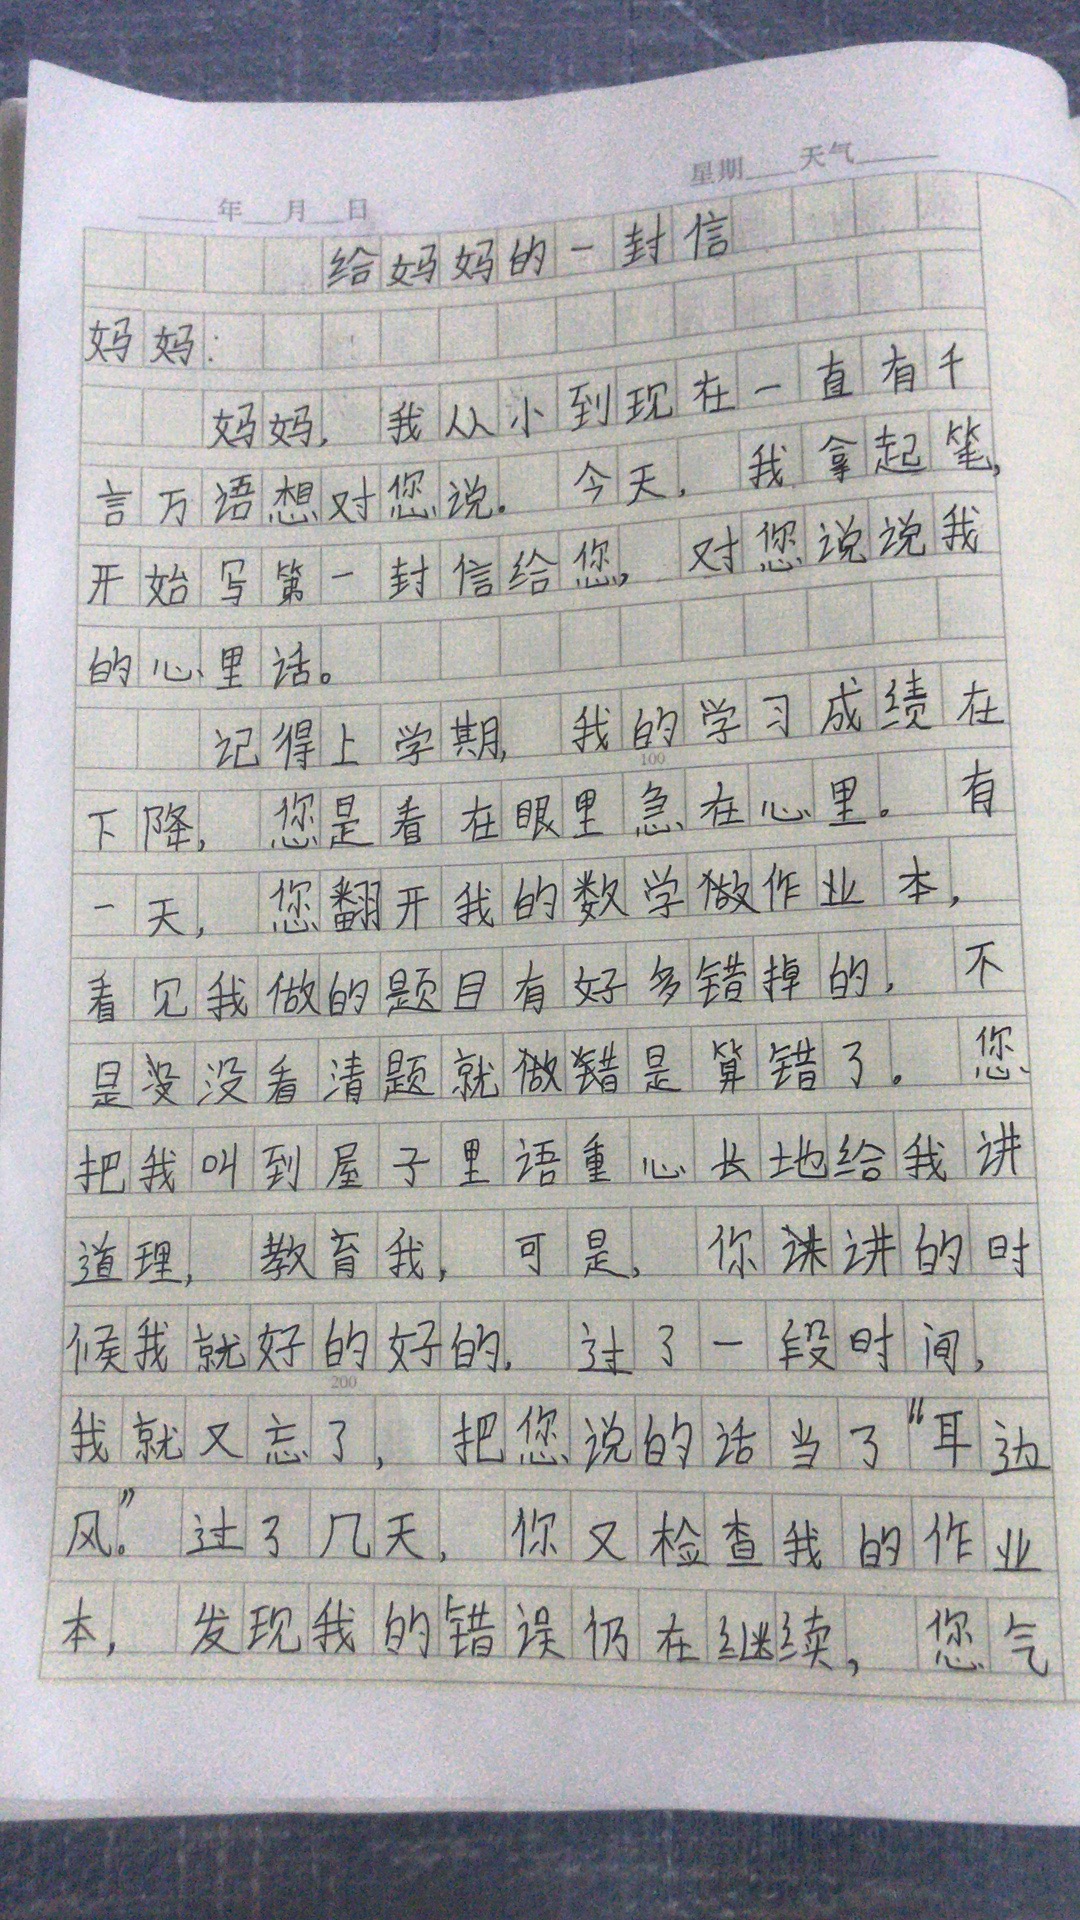 星期____天气_____
____年__月__日
给妈妈的一封信
妈妈:
妈妈,我从小到现在一直有千
言万语想对您说。今天,我拿起笔,
开始写第一封信给您,对您说说我
的心里话。
记得上学期,我的学习成绩在
100
下降,您是看在眼里急在心里。有
一天,您翻开我的数学做作业本,
看见我做的题目有好多错掉的,不
是没没看清题就做错是算错了。您
把我叫到屋子里语重心长地给我讲
道理,教育我,可是,你讲的时
候我就好的好的,过了一段时间,
200
我就又忘了,把您说的话当了“耳边
风”。过了几天,你又检查我的作业
本,发现我的错误仍在继续,您气